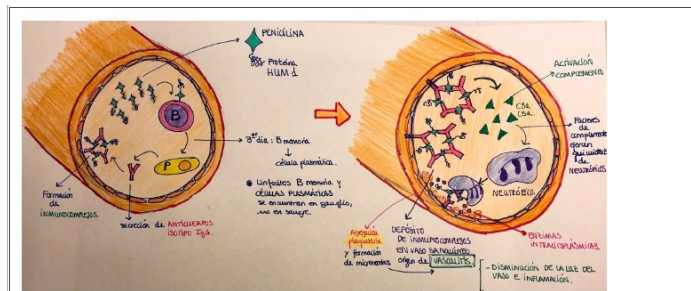 PENICILINA
Proteína
HUM1
B
3er día: B memoria
célula plasmática.
P
Linfocitos B memoria y
CÉLULAS PLASMÁTICAS
se encuentran en ganglio,
no en sangre.
Formación
de
INMUNOCOMPLEJOS.
secreción de ANTICUERPOS
ISOTIPO IgG.
ACTIVACIÓN
COMPLEMENTO
C3a
C5a
Factores de
complemento
ejercen
quimiotaxis
de
NEUTRÓFILOS
NEUTRÓFILO
ENZIMAS
INTRACITOPLÁSMICAS.
Agregación
plaquetaria
y formación
de microtrombos
DEPÓSITO
DE INMUNOCOMPLEJOS
EN VASO SANGUÍNEO
origen de VASCULITIS
- DISMINUCIÓN DE LA LUZ DEL
VASO E INFLAMACIÓN.